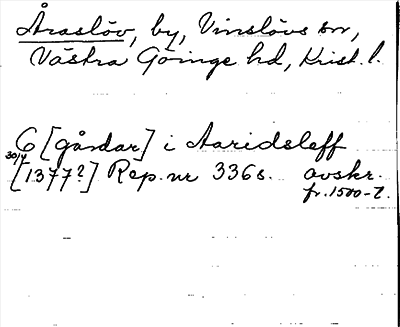 Åraslöv, by, Vinslövs sn,
Västra Göinge hd, Krist. l.
6 [gårdar] i Aaridsleff
30/4 [1377?] Rep. nr 336 s. avskr.
fr. 1500-t.